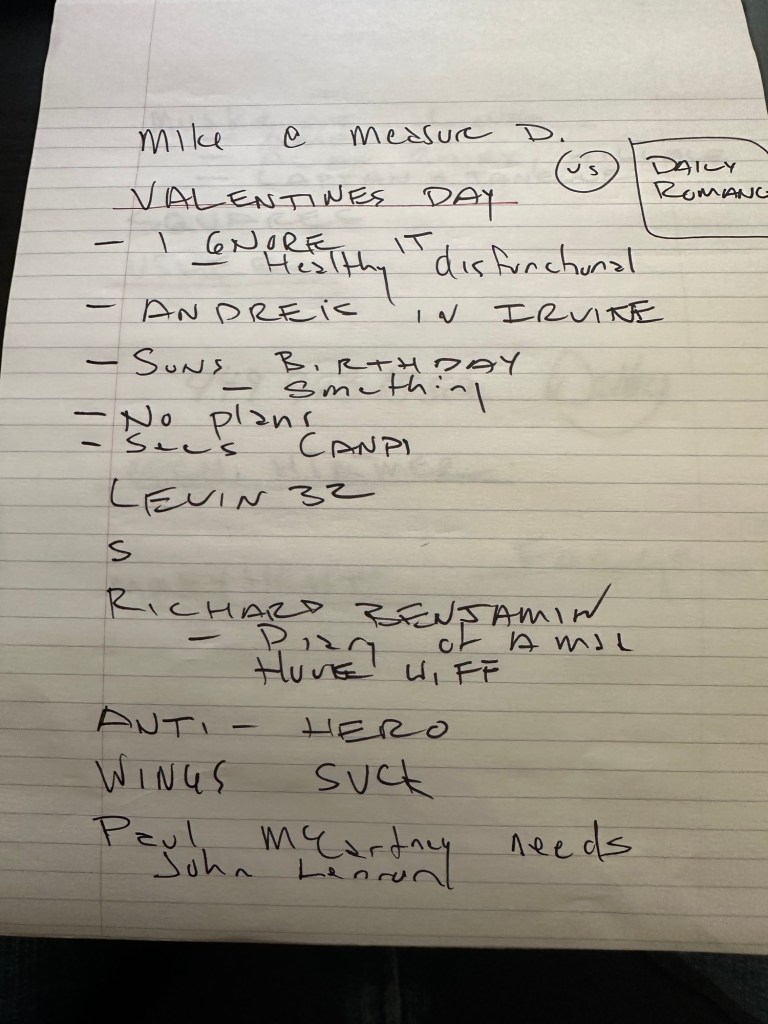 Mike @ Measure D.
VALENTINES DAY
US
DAILY
ROMANC
- I GNORE IT
- Healthy disfunctional
- ANDREIS IN IRVINE
- SUNS BIRTHDAY
- Smething
- No plans
- Sees CANDI
LEVIN 32
S
RICHARD BENJAMIN
- Diary of A
WIFF
ANTI - HERO
WINGS SUCK
Paul McCartney needs
John Lennon